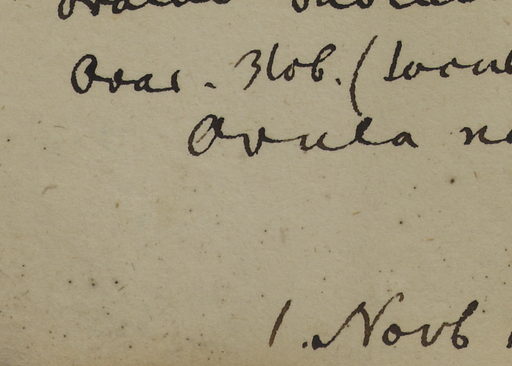 Ovar. 3lob. (locul
Ovula n
1. Novb